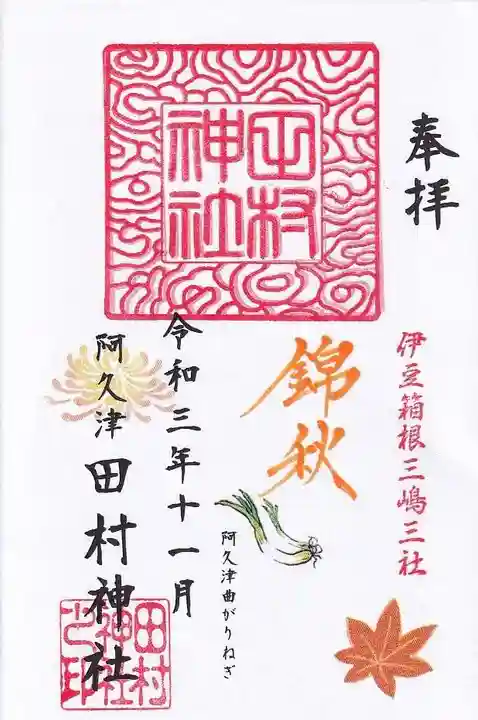 奉拝
伊豆箱根三嶋三社
田村
神社
錦秋
阿久津曲がりねぎ
令和三年十一月
阿久津田村神社
田村
神社
之印